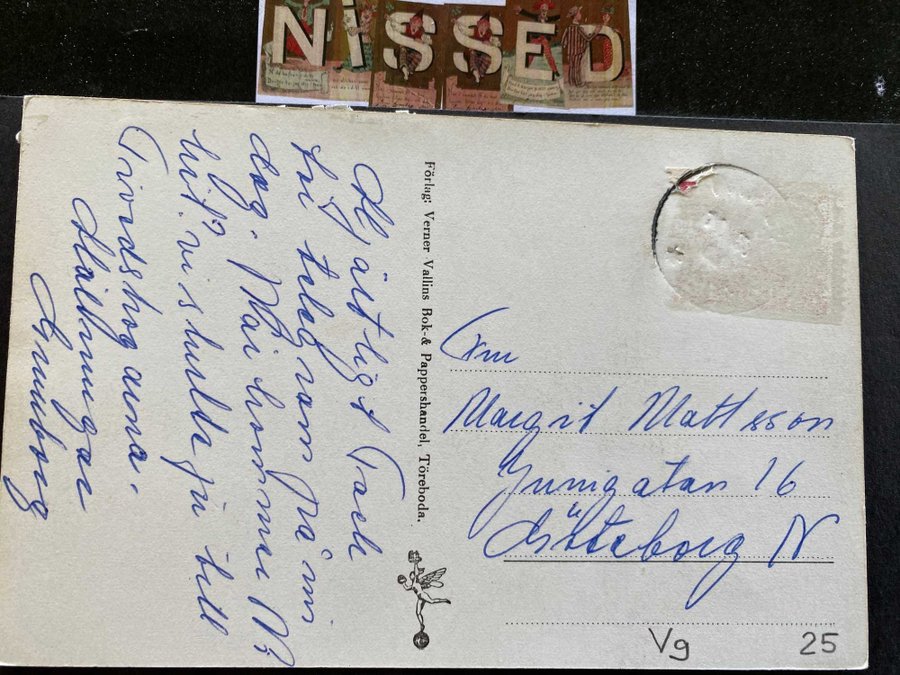 NISSED
Hjärtligt Tack
för telegram på min
dag. När kommer Ni
hit? vi skulle ju till
Tivedskogarna.
Hälsningar
Förlag: Verner Vallins Bok-& Pappershandel, Töreboda.
Margit Mattsson
Junigatan 16
Göteborg N
Vg 25